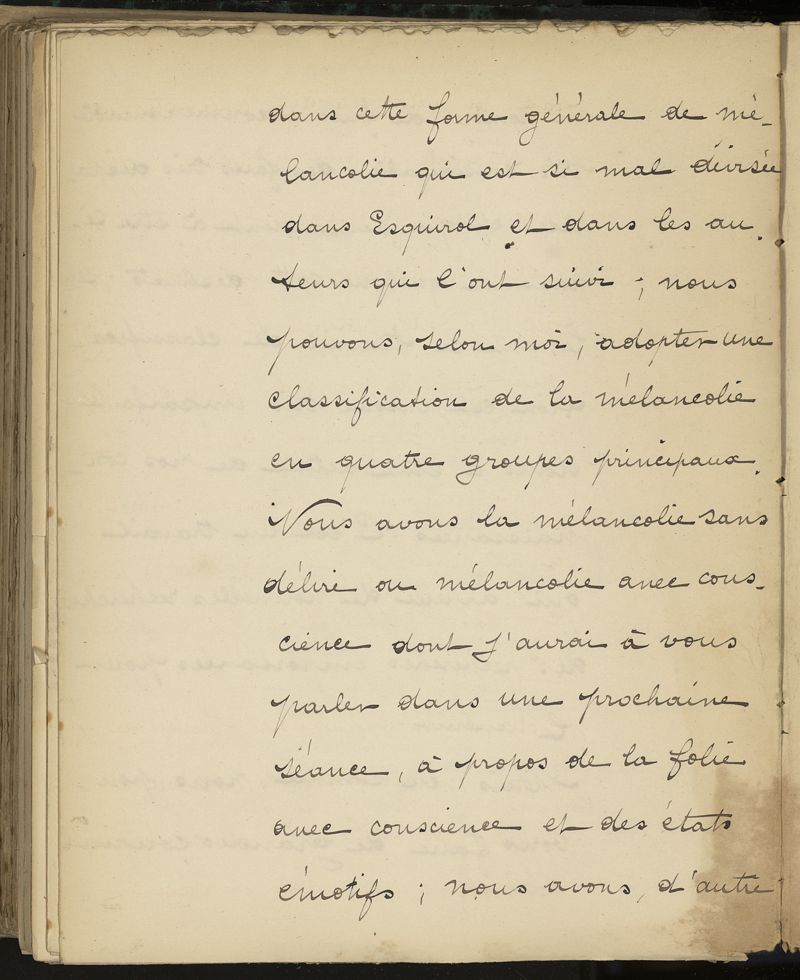 dans cette forme générale de mé-
lancolie qui est si mal divisée
dans Esquirol et dans les au-
teurs qui l'ont suivi ; nous
pouvons, selon moi, adopter une
classification de la mélancolie
en quatre groupes principaux.
Nous avons la mélancolie sans
délire ou mélancolie avec cons-
cience dont j'aurai à vous
parler dans une prochaine
séance, à propos de la folie
avec conscience et des états
émotifs ; nous avons, d'autre